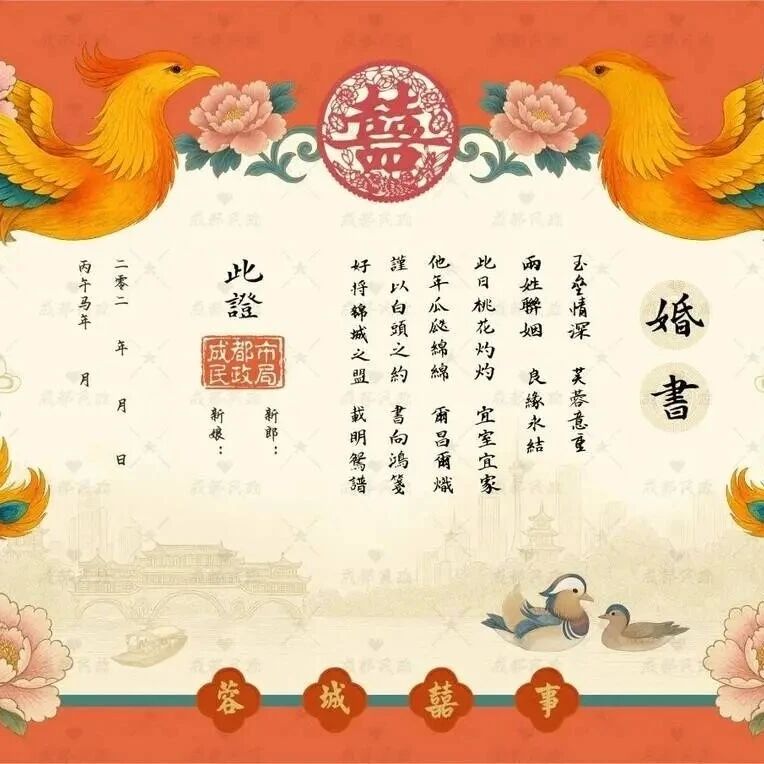 囍
婚書
玉垒情深 芙蓉意重
兩姓聯姻 良緣永结
此日桃花灼灼 宜室宜家
他年瓜瓞綿綿 爾昌爾熾
謹以白頭之約 書向鴻箋
好将錦城之盟 載明鴛譜
新郎：
新娘：
此證
成都市
民政局
二零二 年 月 日
丙午马年 月
蓉城囍事
成都民政